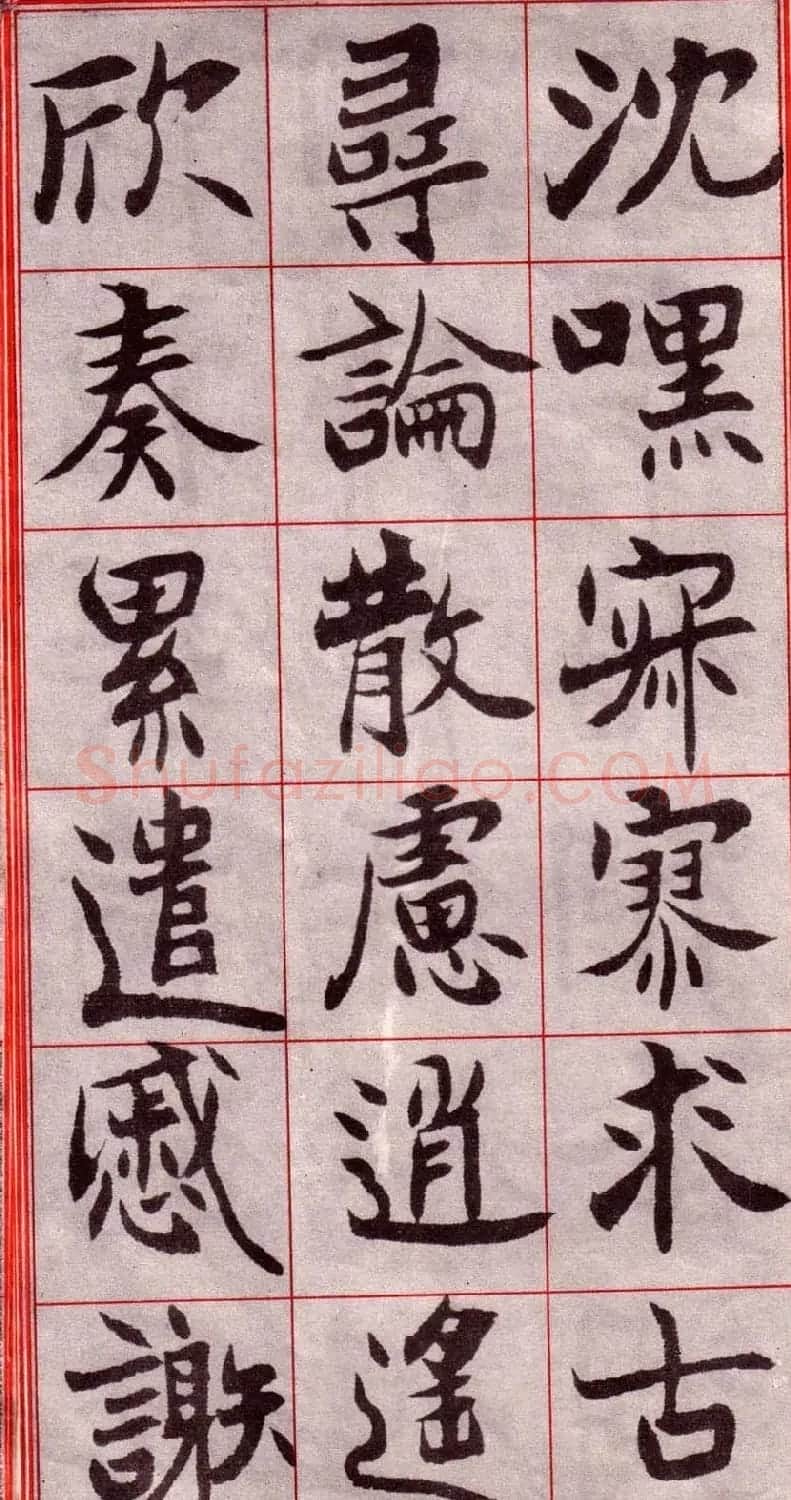 沈嘿寂寥求古
尋論散慮逍遙
欣奏累遣慼謝
Shufaziliao.COM